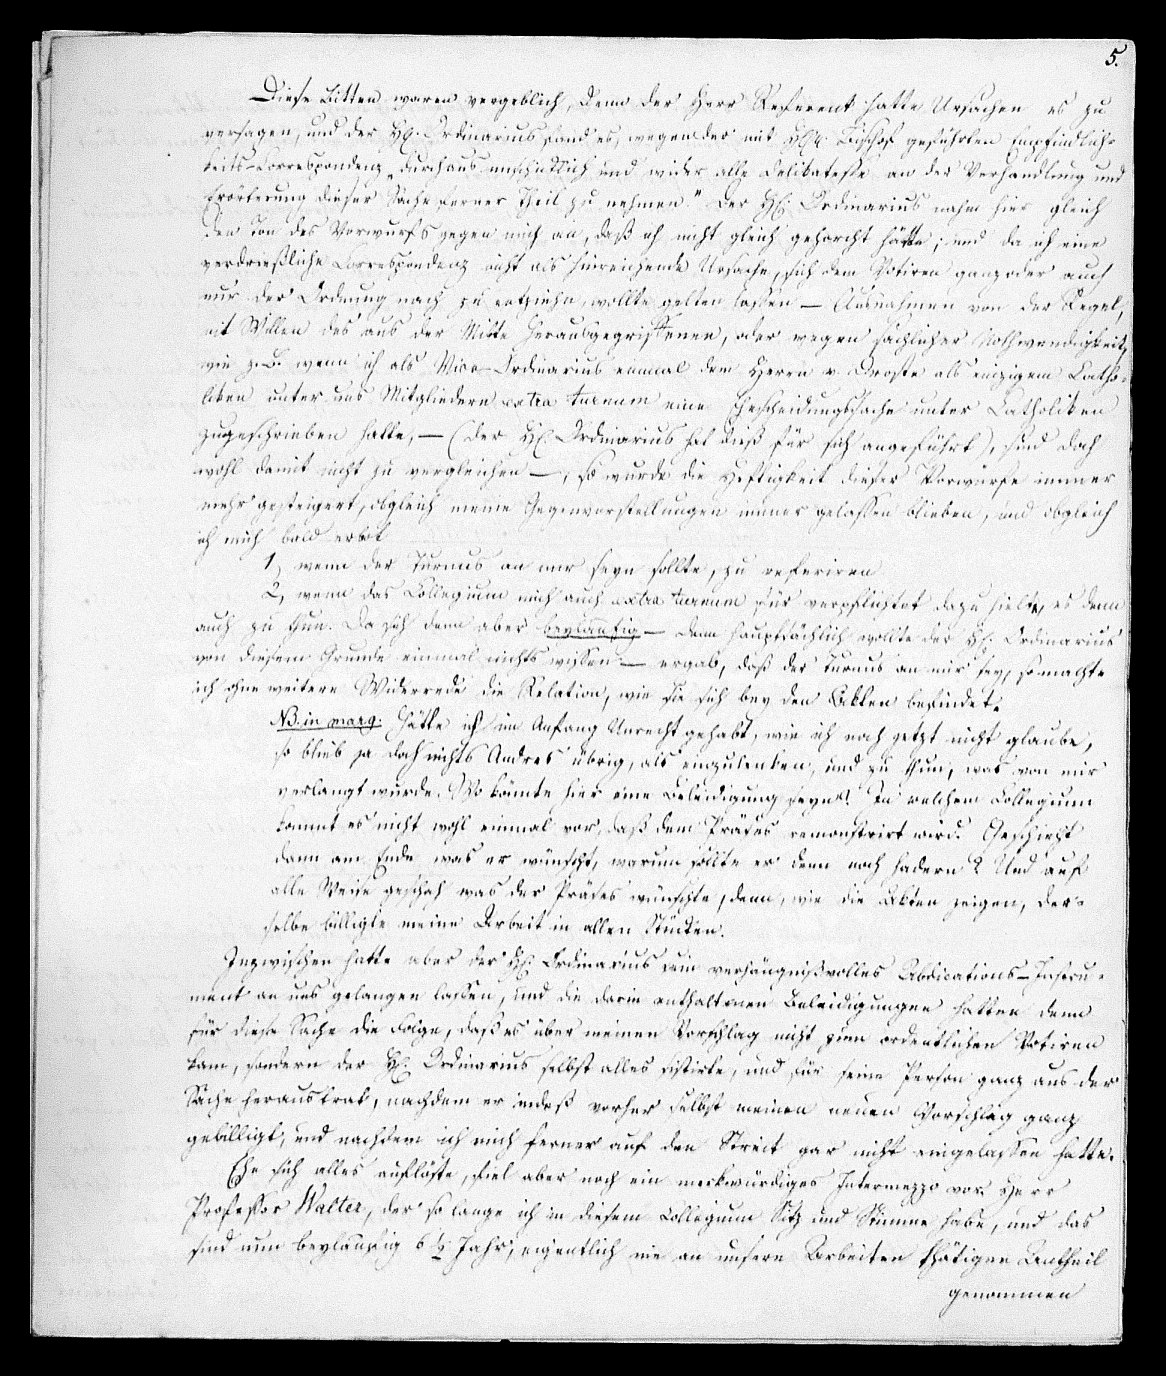 5.
Diese Bitten waren vergeblich, denn der Herr Referent hatte Ursachen es zu
versagen, und der H. Ordinarius fand es, wegen der mit geführten Empfindlich-
keits-Correspondenz „durchaus unschicklich und wider alle Delikatesse an der Verhandlung und
Erörterung dieser Sache ferner Theil zu nehmen." Der H. Ordinarius nahm hier gleich
den Ton des Vorwurfs gegen mich an, daß ich nicht gleich gehorcht hätte; und da ich eine
verdrießliche Correspondenz nicht als hinreichende Ursache, sich dem Votiren ganz oder auch
nur der Ordnung nach zu entziehn, wollte gelten lassen — Ausnahmen von der Regel,
mit Willen des aus der Mitte herausgegriffenen, oder wegen sachlicher Nothwendigkeit,
wie z. B. wenn ich als Vice-Ordinarius einmal dem Herrn v. Droste als einzigem Catho-
liken unter uns Mitgliedern extra turnum eine Ehescheidungssache unter Catholiken
zugeschrieben hatte, — (der H. Ordinarius hat dieß für sich angeführt), sind doch
wohl damit nicht zu vergleichen —, so wurde die Heftigkeit dieser Vorwürfe immer
mehr gesteigert, obgleich meine Gegenvorstellungen immer gelassen blieben, und obgleich
ich mich bald erbot
1, wenn der Turnus an mir seyn sollte, zu referiren
2, wenn das Collegium mich auch extra turnum für verpflichtet dazu hielte, es dann
auch zu thun. Da sich denn aber beyläufig — denn hauptsächlich wollte der H. Ordinarius
von diesem Grunde einmal nichts wissen — ergab, daß der Turnus an mir sey, so machte
ich ohne weitere Widerrede die Relation, wie sie sich bey den Akten befindet.
NB. in marg. Hätte ich im Anfang Unrecht gehabt, wie ich noch jetzt nicht glaube,
so blieb ja doch nichts Andres übrig, als einzulenken, und zu thun, was von mir
verlangt wurde. Wo könnte hier eine Beleidigung seyn? In welchem Collegium
kommt es nicht wohl einmal vor, daß dem Präses remonstrirt wird? Geschieht
dann am Ende was er wünscht, warum sollte er denn noch hadern? Und auf
alle Weise geschah was der Präses wünschte, denn, wie die Akten zeigen, der-
selbe billigte meine Arbeit in allen Stücken.
Inzwischen hatte aber der H. Ordinarius sein verhängnißvolles Abdications-Instru-
ment an uns gelangen lassen, und die darin enthaltenen Beleidigungen hatten denn
für diese Sache die Folge, daß es über meinen Vorschlag nicht zum ordentlichen Votiren
kam, sondern der H. Ordinarius selbst alles sistirte, und für seine Person ganz aus der
Sache heraustrat, nachdem er indeß vorher selbst meinen neuen Vorschlag ganz
gebilligt, und nachdem ich mich ferner auf den Streit gar nicht eingelassen hatte.
Ehe sich alles auflöste, fiel aber noch ein merkwürdiges Intermezzo vor. Herr
Professor Walter, der so lange ich in diesem Collegium Sitz und Stimme habe, und das
sind nun beyläufig 6 ½ Jahr, eigentlich nie an unsern Arbeiten thätigen Antheil
genommen